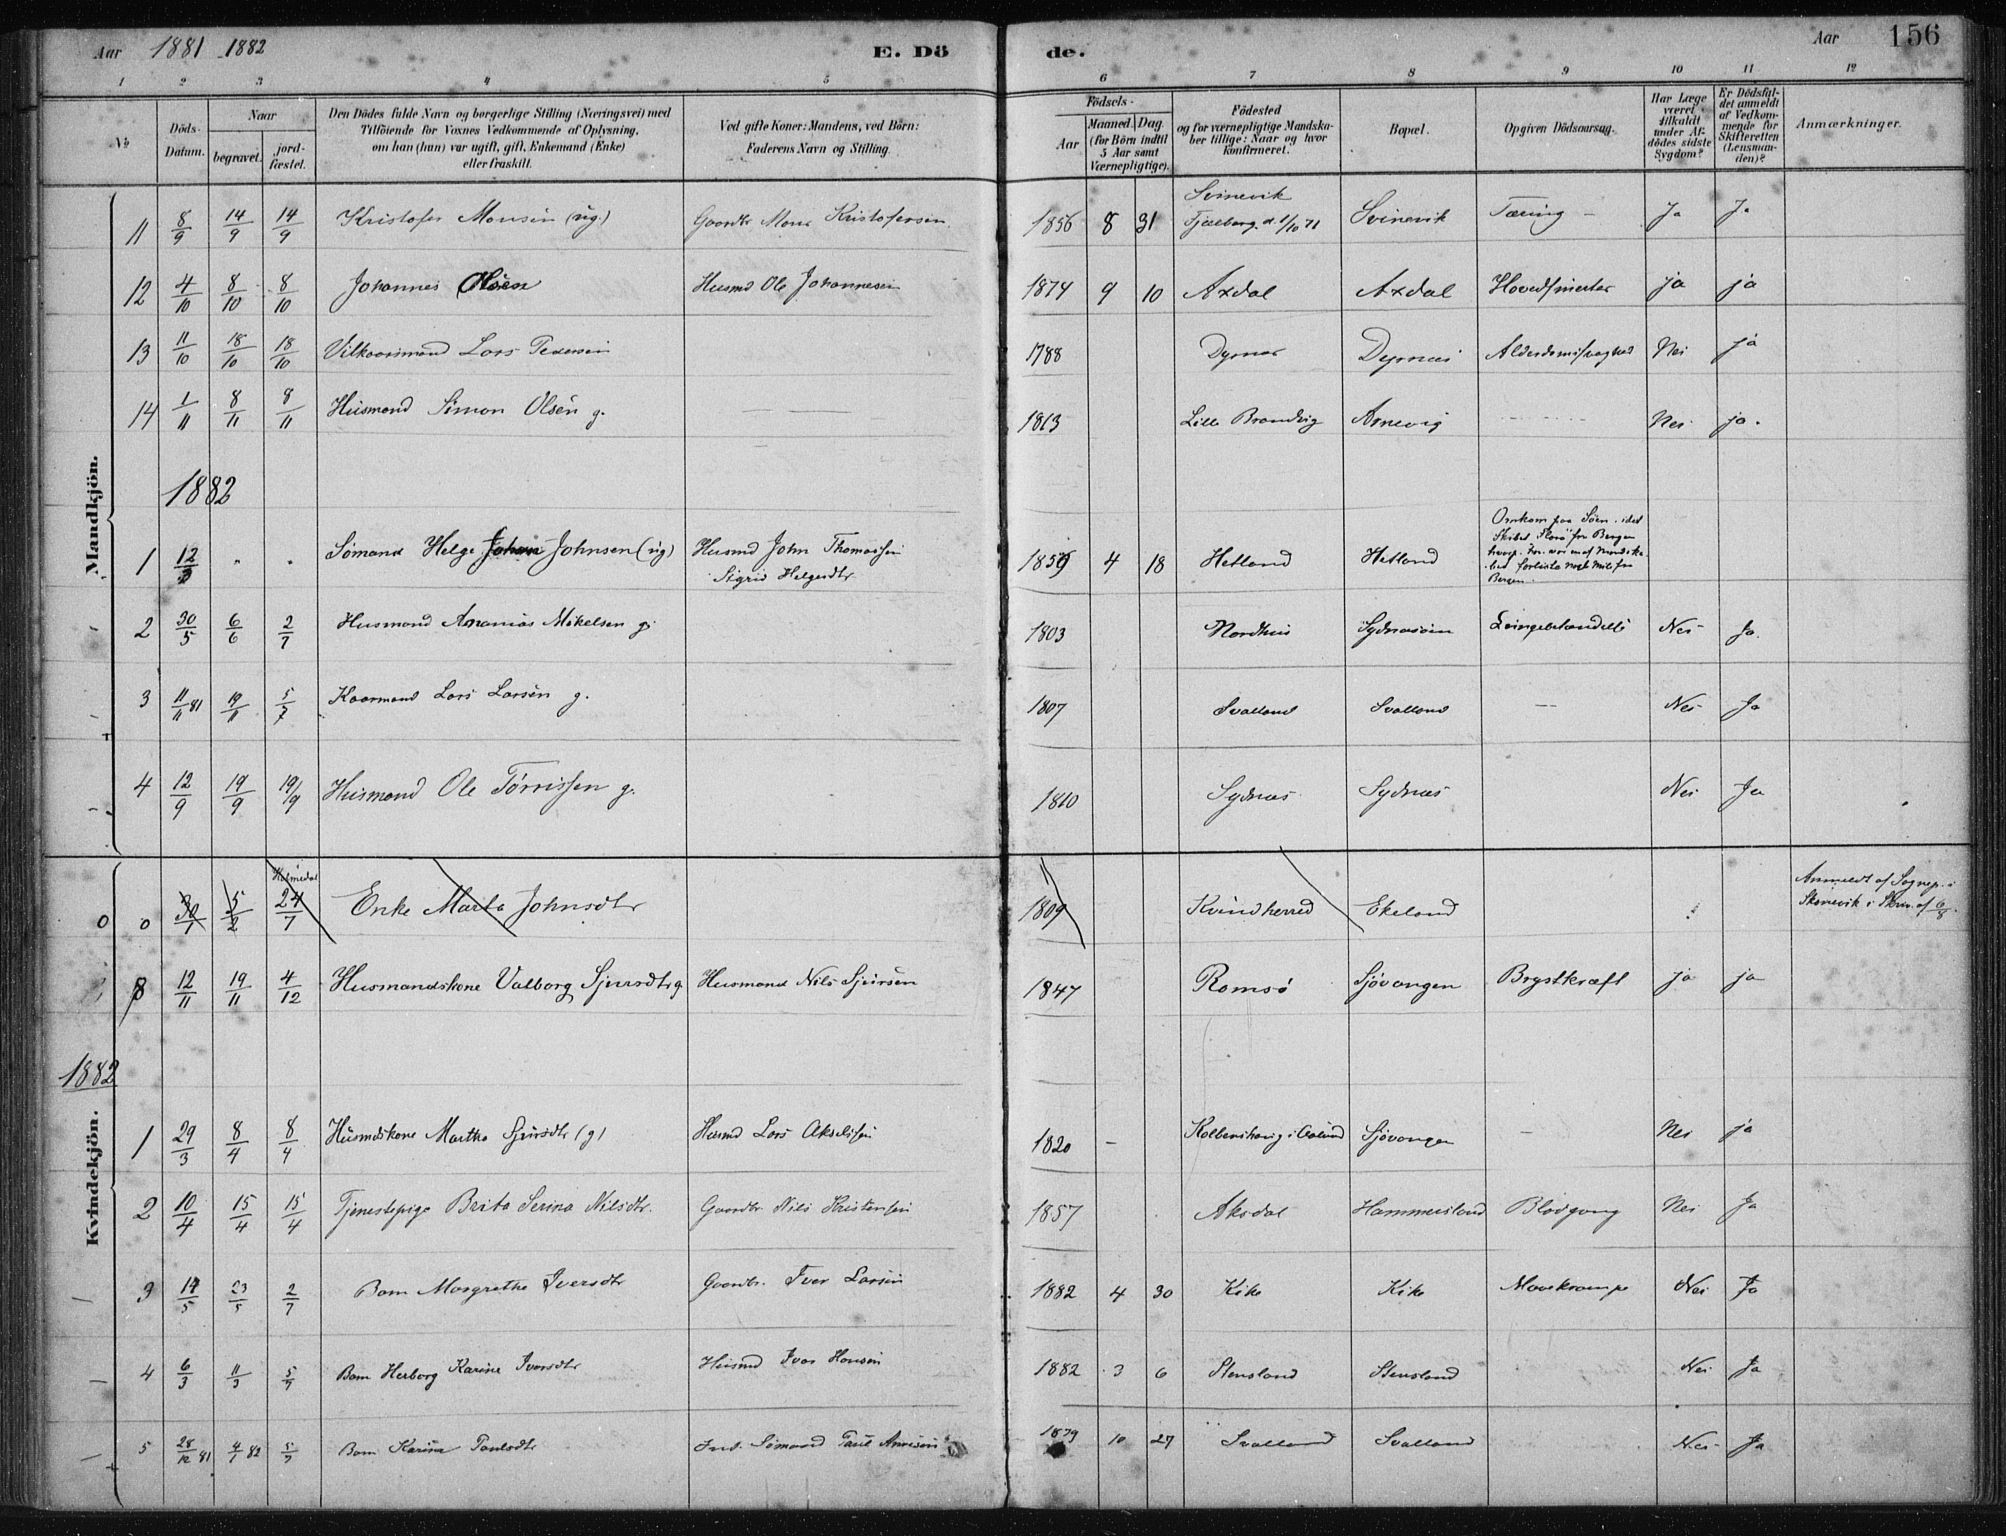 Aar 1881 1882 E. Dö de. Aar 156
1 2 3 4 5 6 7 8 9 10 11 12
№ Döds-Datum. Naar begravet. jord-fæstet. Den Dödes fulde Navn og borgerlige Stilling (Næringsvei) med Tilföiende for Voxnes Vedkommende af Oplysning, om han (hun) var ugift, gift, Enkemand (Enke) eller fraskilt. Ved gifte Koner: Mandens, ved Börn: Faderens Navn og Stilling. Födsels- Aar Maaned. Dag (for Börn indtil 5 Aar samt Værnepligtige). Födested og for værnepligtige Mandskaber tillige: Naar og hvor konfirmeret. Bopæl. Opgiven Dödsaarsag. Har Læge været tilkaldt under Afdödes sidste Sygdom? Er Dödsfaldet anmeldt af Vedkommende for Skifteretten (Lensmanden)? Anmærkninger.
Mandkjön.
11 8/9 14/9 14/9 Kristofer Monsen (ug.) Gaardbr. Mons Kristofersen 1856 8 31 Svinevik Fjælberg d. 1/10 71 Svinevik Tæring Ja Ja
12 4/10 8/10 8/10 Johannes Olsen Husmd Ole Johannesen 1874 9 10 Axdal Axdal Hovedsmerter ja ja
13 11/10 18/10 18/10 Vilkaarsmand Lars Pedersen 1788 Dyrnæs Dyrnæs Alderdomssvaghed Nei ja
14 1/11 8/11 8/11 Husmand Simon Olsen g. 1813 Lille Brandvig Arnevig Nei ja.
1882
1 12/3 " " Sømand Helge Johnsen (ug) Husmd John Thomassen
Sigrid Helgesdtr 1859 4 18 Hetland Hetland Omkom paa Søen. idet
Skibet Florø for Bergen
Bergen.
2 30/5 6/6 2/7 Husmand Ananias Mikelsen g. 1803 Nordhus Sydnæsøen Lungebetændelse Nei Ja.
3 11/11 81 19/11 5/7 Kaarmand Lars Larsen g. 1807 Svalland Svalland — Nei Ja
4 12/9 19/9 19/9 Husmand Ole Tørrissen g. 1810 Sydnæs Sydnæs Nei Ja
Holmedal
0 0 30/1 5/2 24/7 Enke Marta Johnsdtr 1809 Kvindherred Ekeland Anmeldt af Sognep. i
Skonevik i Skriv. af 6/8.
8 12/11 19/11 4/12 Husmandskone Valborg Sjursdtr g Husmand Nils Sjursen 1847 Romsø Sjøvangen Brystkræft ja ja
1882
Kvindekjön.
1 29/3 8/4 8/4 Husmdskone Martha Sjursdtr (g) Husmd Lars Akselsen 1820 — Sjøvangen — Nei ja
2 10/4 15/4 15/4 Tjenestepige Brita Serina Nilsdtr. Gaardbr. Nils Kristensen 1857 Aksdal Hammersland Blodgang Nei Ja
3 14/5 23/5 2/7 Barn Margrethe Iversdtr Gaardbr. Iver Larsen 1882 4 30 Kike Kike Mavekrampe Nei Ja
4 6/3 11/3 5/7 Barn Herborg Karine Iversdtr Husmd Iver Hansen 1882 3 6 Stensland Stensland Nei Ja
5 28/12 81 4/1 82 5/7 Barn Karina Paulsdtr Inds. Sømand Paul Ansen 1879 10 27 Svalland Svalland Nei Ja